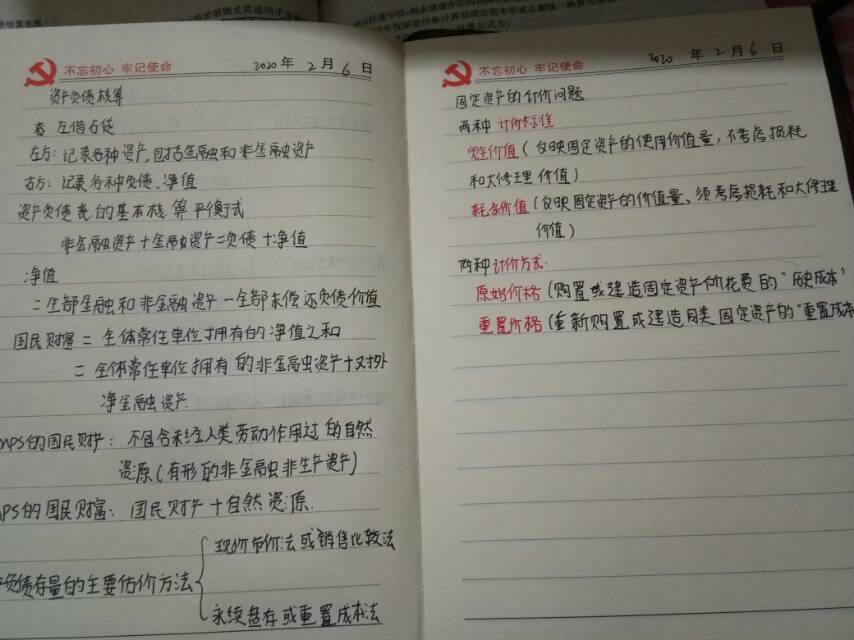 不忘初心 牢记使命
2020年 2月 6日
资产负债核算
者 左借右贷
左方：记录各种资产，包括金融和非金融资产
右方：记录各种负债、净值
资产负债表的基本核算平衡式
非金融资产＋金融资产＝负债＋净值
净值
＝全部金融和非金融资产－全部未偿还负债价值
国民财富＝全体常住单位拥有的净值之和
＝全体常住单位拥有的非金融资产＋对外
净金融资产
MPS的国民财产：不包含未经人类劳动作用过的自然
资源（有形的非金融非生产资产）
MPS的国民财富：国民财产＋自然资源
负债存量的主要估价方法
现价市价法或销售比较法
永续盘存或重置成本法
不忘初心 牢记使命
2020 年 2月 6日
固定资产的计价问题
两种计价标准
完全价值（反映固定资产的使用价值量，不考虑损耗
和大修理价值）
耗余价值（反映固定资产的价值量，须考虑损耗和大修理
价值）
两种计价方式：
原始价格（购置或建造固定资产所花费的“历史成本”
重置价格（重新购置或建造同类固定资产的“重置成本
计算公式为：